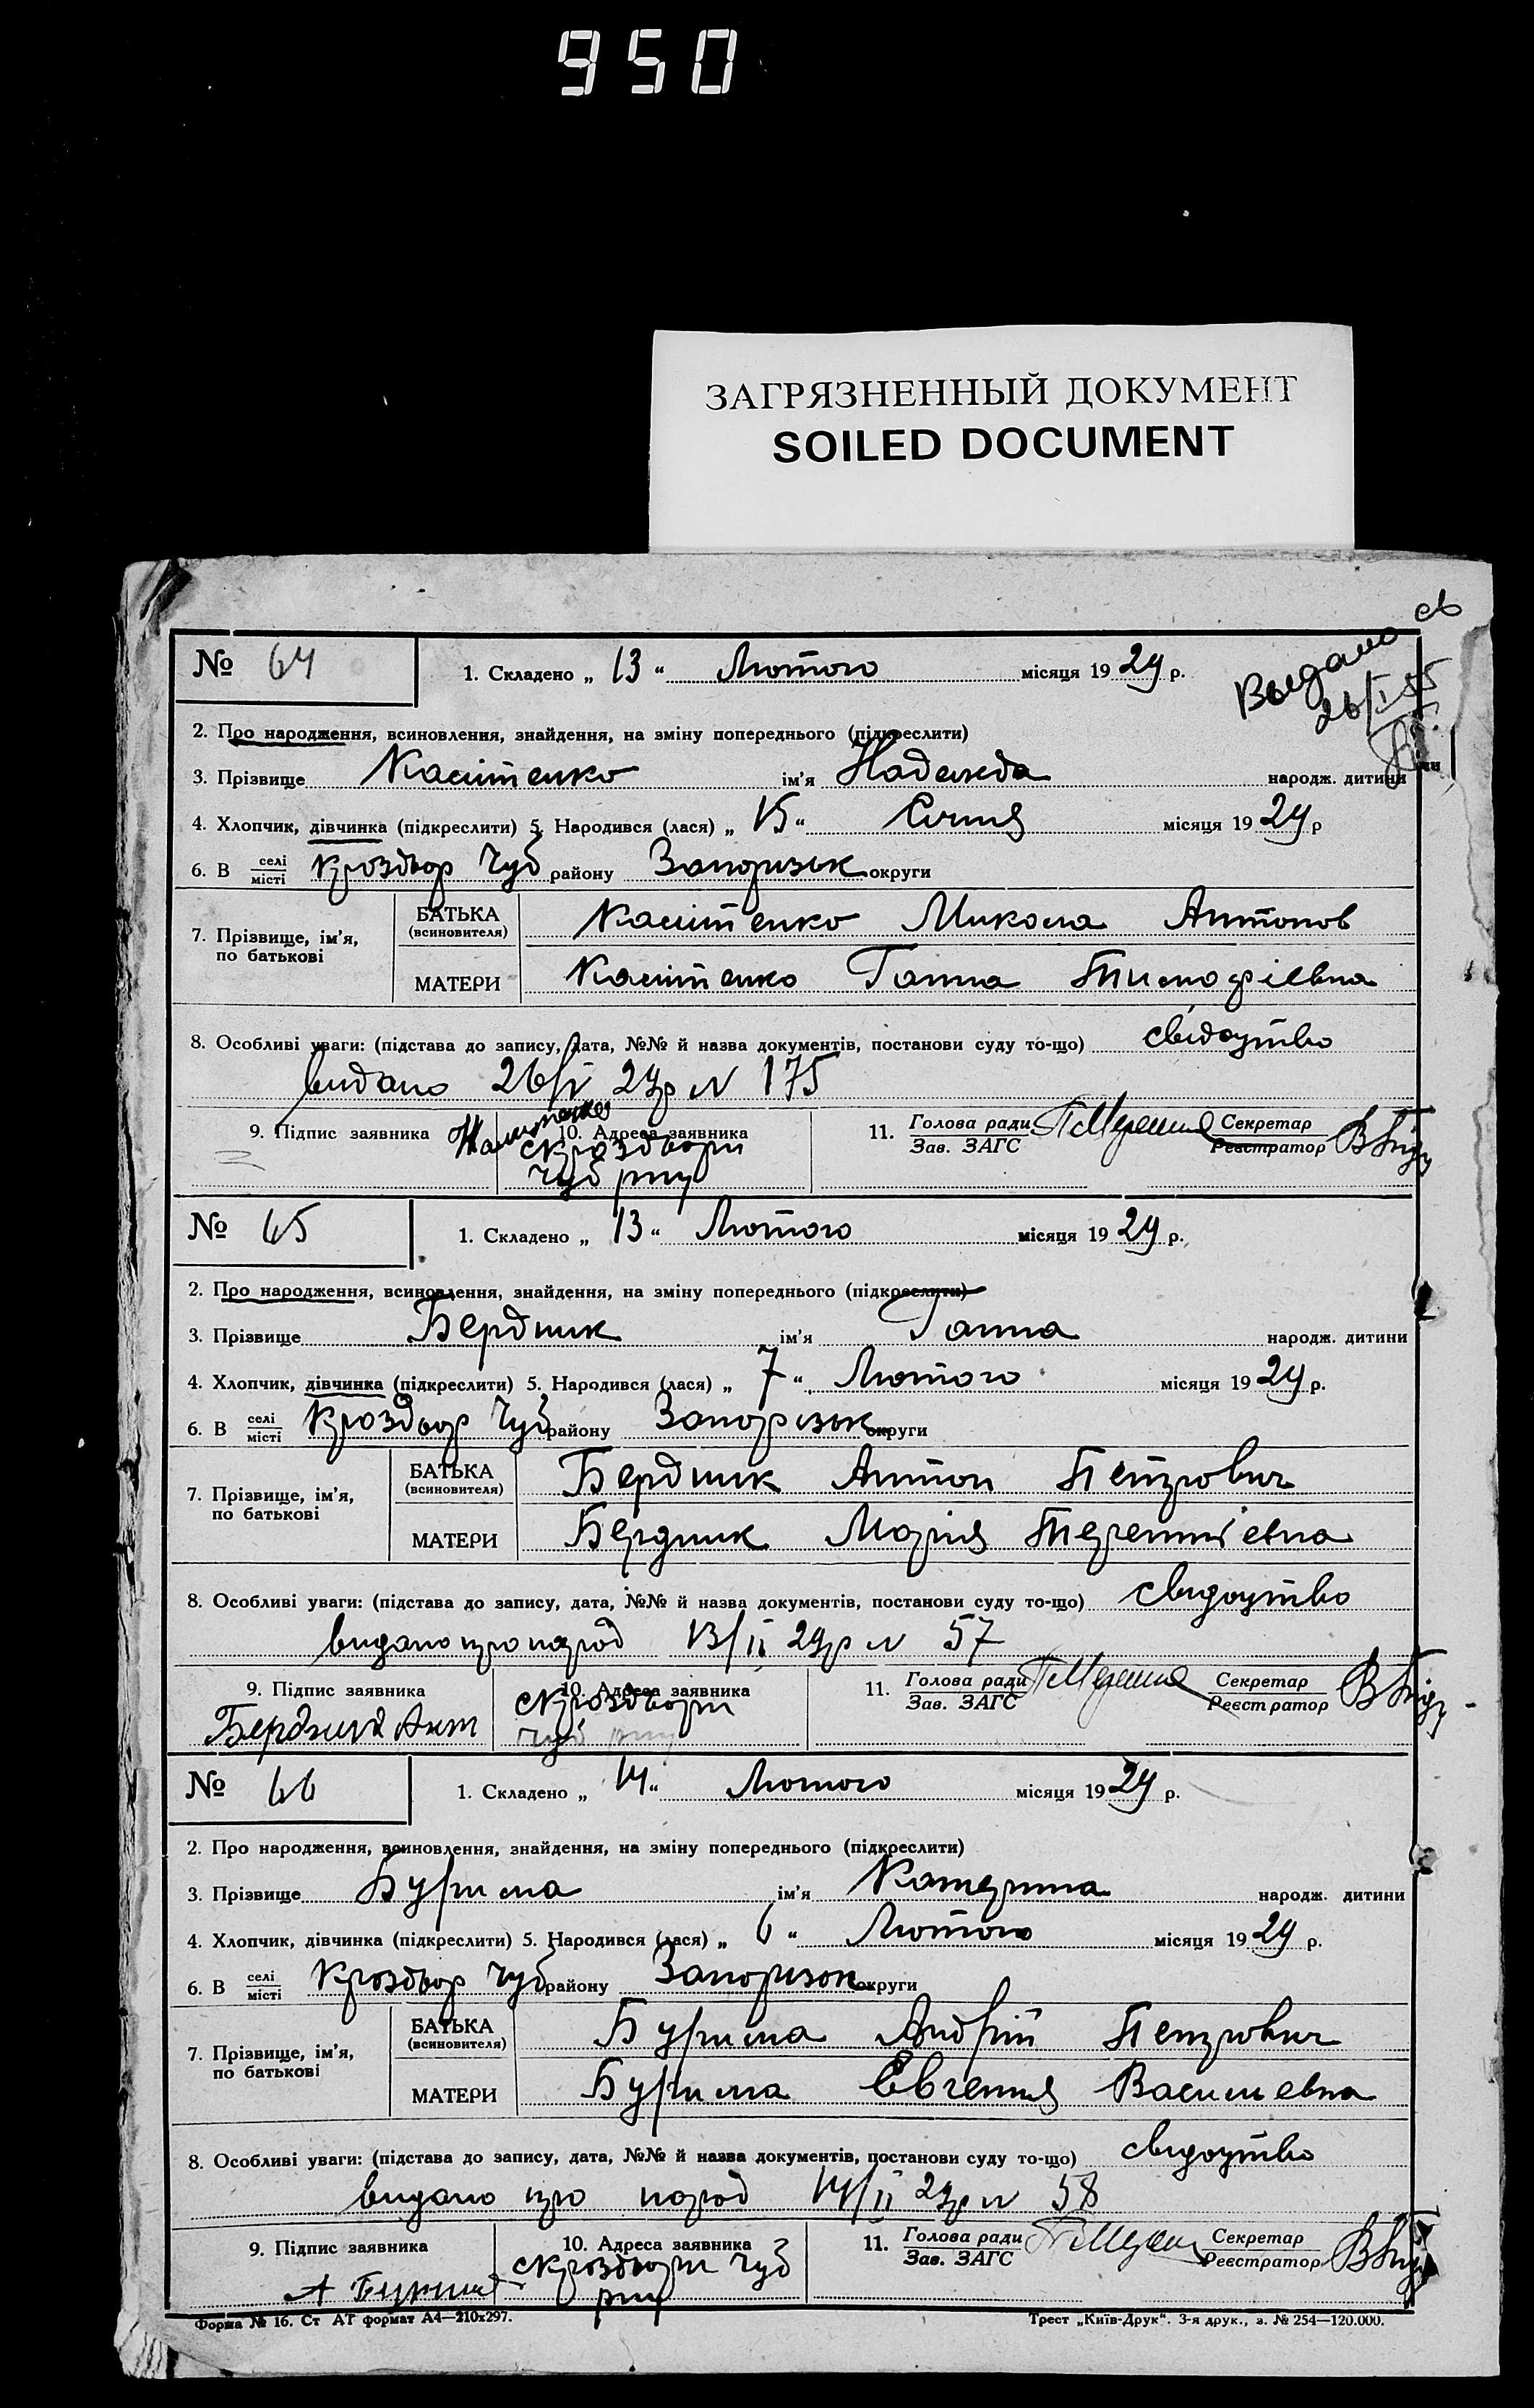 950
ЗАГРЯЗНЕННЫЙ ДОКУМЕНТ
SOILED DOCUMENT
Выдано св
26/I 55
№ 64 1. Складено „ 13 “ Лютого місяця 19 29 р.
2. Про народження, всиновлення, знайдення, на зміну попереднього (підкреслити)
3. Прізвище Каштенко ім’я Надежда народж. дитини
4. Хлопчик, дівчинка (підкреслити) 5. Народився (лася) „ 15 “ Січня місяця 19 29 р
6. В селі/місті Кроздвор Чуб району Запоризьк округи
7. Прізвище, ім’я, по батькові
БАТЬКА (всиновителя) Каштенко Микола Антонов
МАТЕРИ Каштенко Ганна Тимофіевна
8. Особливі уваги: (підстава до запису, дата, №№ й назва документів, постанови суду то-що) свідоцтво
видано 29р N 175
9. Підпис заявника 10. Адреса заявника 11. Голова ради/Зав. ЗАГС Секретар/Реєстратор
Чуб рну
№ 65 1. Складено „ 13 “ Лютого місяця 19 29 р.
2. Про народження, всиновлення, знайдення, на зміну попереднього (підкреслити)
3. Прізвище Бердник ім’я Ганна народж. дитини
4. Хлопчик, дівчинка (підкреслити) 5. Народився (лася) „ 7 “ Лютого місяця 19 29 р.
6. В селі/місті Кроздвор Чуб району Запорізьк округи
7. Прізвище, ім’я, по батькові
БАТЬКА (всиновителя) Бердник Антон Петрович
МАТЕРИ Бердник Марія Терентіевна
8. Особливі уваги: (підстава до запису, дата, №№ й назва документів, постанови суду то-що) свидоцтво
видано про народ 13/II 29р N 57
9. Підпис заявника 10. Адреса заявника 11. Голова ради/Зав. ЗАГС Секретар/Реєстратор
Чуб рну
№ 66 1. Складено „ 14 “ Лютого місяця 19 29 р.
2. Про народження, всиновлення, знайдення, на зміну попереднього (підкреслити)
3. Прізвище Бурима ім’я Катерина народж. дитини
4. Хлопчик, дівчинка (підкреслити) 5. Народився (лася) „ 6 “ Лютого місяця 19 29 р.
6. В селі/місті Кроздвор Чуб району Запоризьк округи
7. Прізвище, ім’я, по батькові
БАТЬКА (всиновителя) Бурима Андрій Петрович
МАТЕРИ Бурима Евгения Васильевна
8. Особливі уваги: (підстава до запису, дата, №№ й назва документів, постанови суду то-що) свидоцтво
видано про народ 14/II 29р N 58
9. Підпис заявника 10. Адреса заявника 11. Голова ради/Зав. ЗАГС Секретар/Реєстратор
Чуб
рну
Форма № 16. Ст АТ формат А4—210х297. Трест „Київ-Друк“. 3-я друк., з. № 254—120.000.